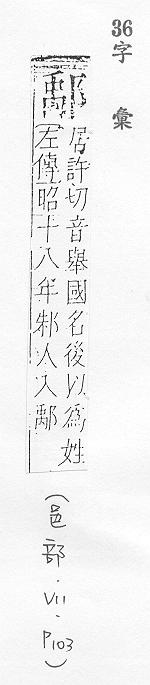 36字彙
鄅
居許切音舉國名後以爲姓
左傳昭十八年邾人入鄅
(邑部.VII.P103)